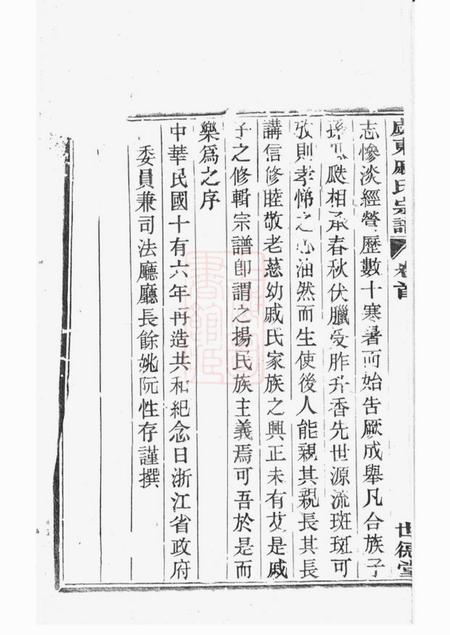 虞東戚氏宗譜 卷首 世德堂
志慘淡經營歷數十寒暑而始告厥成舉凡合族子
孫飈相承春秋伏臘受胙升香先世源流斑斑可
攷則孝悌之心油然而生使後人能親其親長其長
講信修睦敬老慈幼戚氏家族之興正未有艾是戚
子之修輯宗譜即謂之揚民族主義焉可吾於是而
樂為之序
中華民國十有六年再造共和紀念日浙江省政府
委員兼司法廳廳長餘姚阮性存謹撰